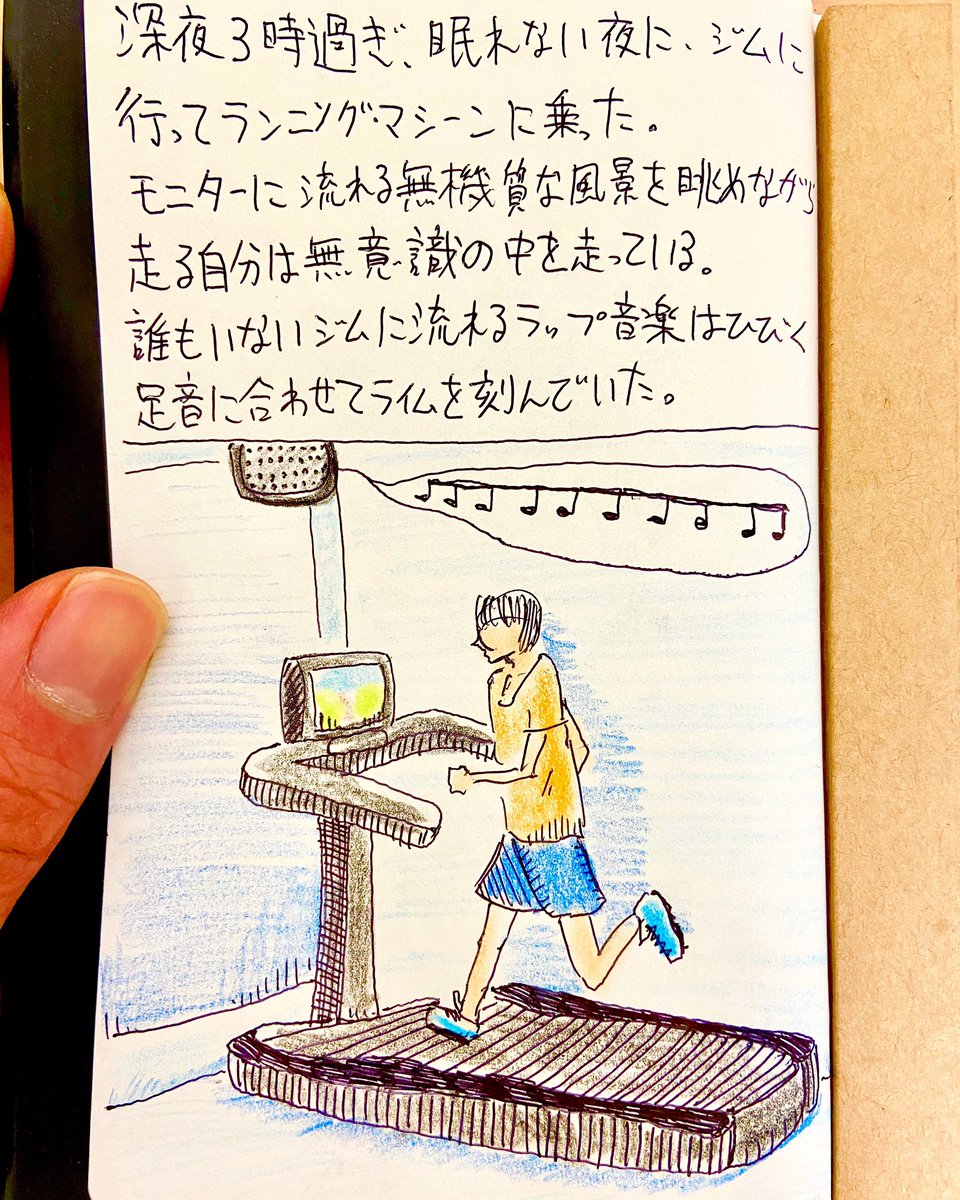 深夜3時過ぎ、眠れない夜に、ジムに
行ってランニング・マシーンに乗った。
モニターに流れる無機質な風景を眺めながら
走る自分は無意識の中を走っている。
誰もいないジムに流れるラップ音楽はひびく
足音に合わせてライムを刻んでいた。